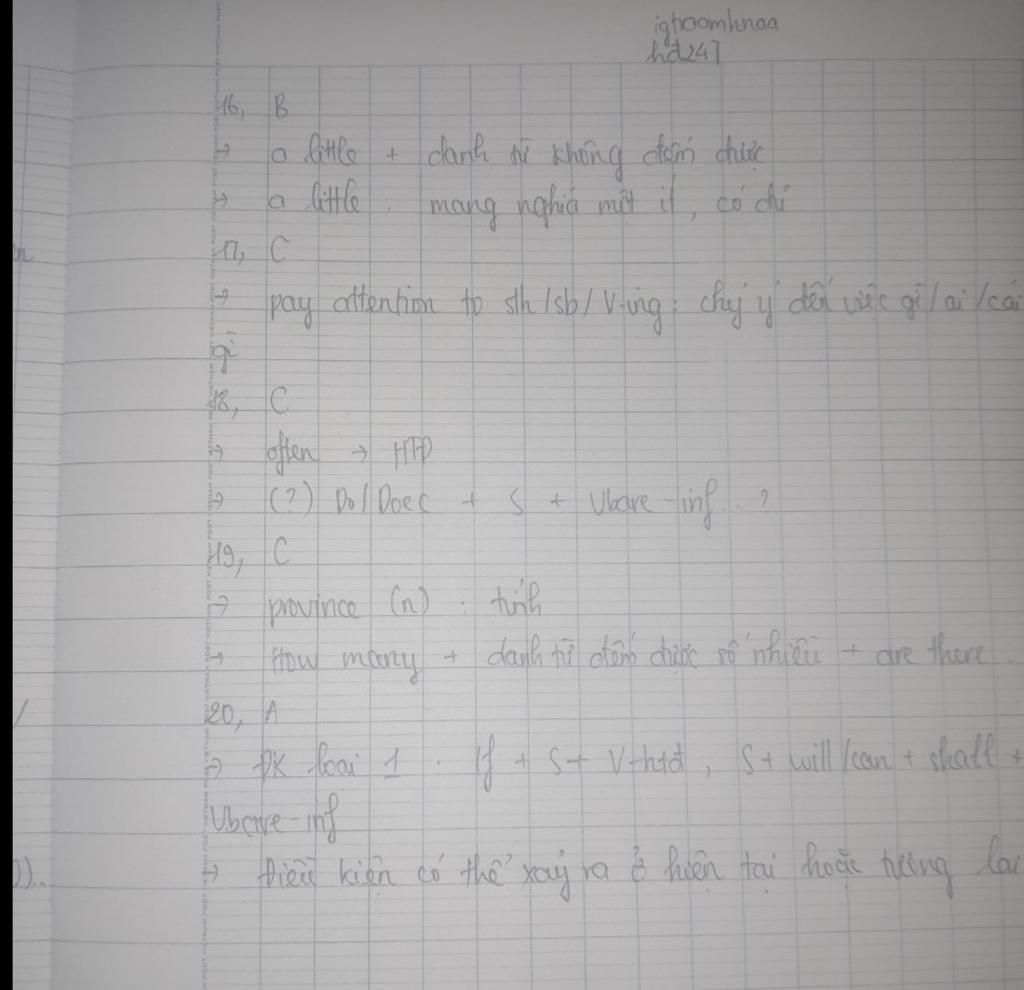 ighoomhnaa
hd247
16, B
→ a little + danh từ không đếm được
→ a little : mang nghĩa một ít, có chỉ
17, C
→ pay attention to sth/sb/V-ing : chý ý đến việc gì/ai/cái
gì
18, C
→ often → HTĐ
→ (?) Do/Does + S + Vbare-inf...?
19, C
→ province (n) : tỉnh
→ How many + danh từ đếm được số nhiều + are there
20, A
→ ĐK loại 1 : If + S + V-htđ, S + will/can + shall +
Vbare-inf
→ Điều kiện có thể xảy ra ở hiện tại hoặc tương lai